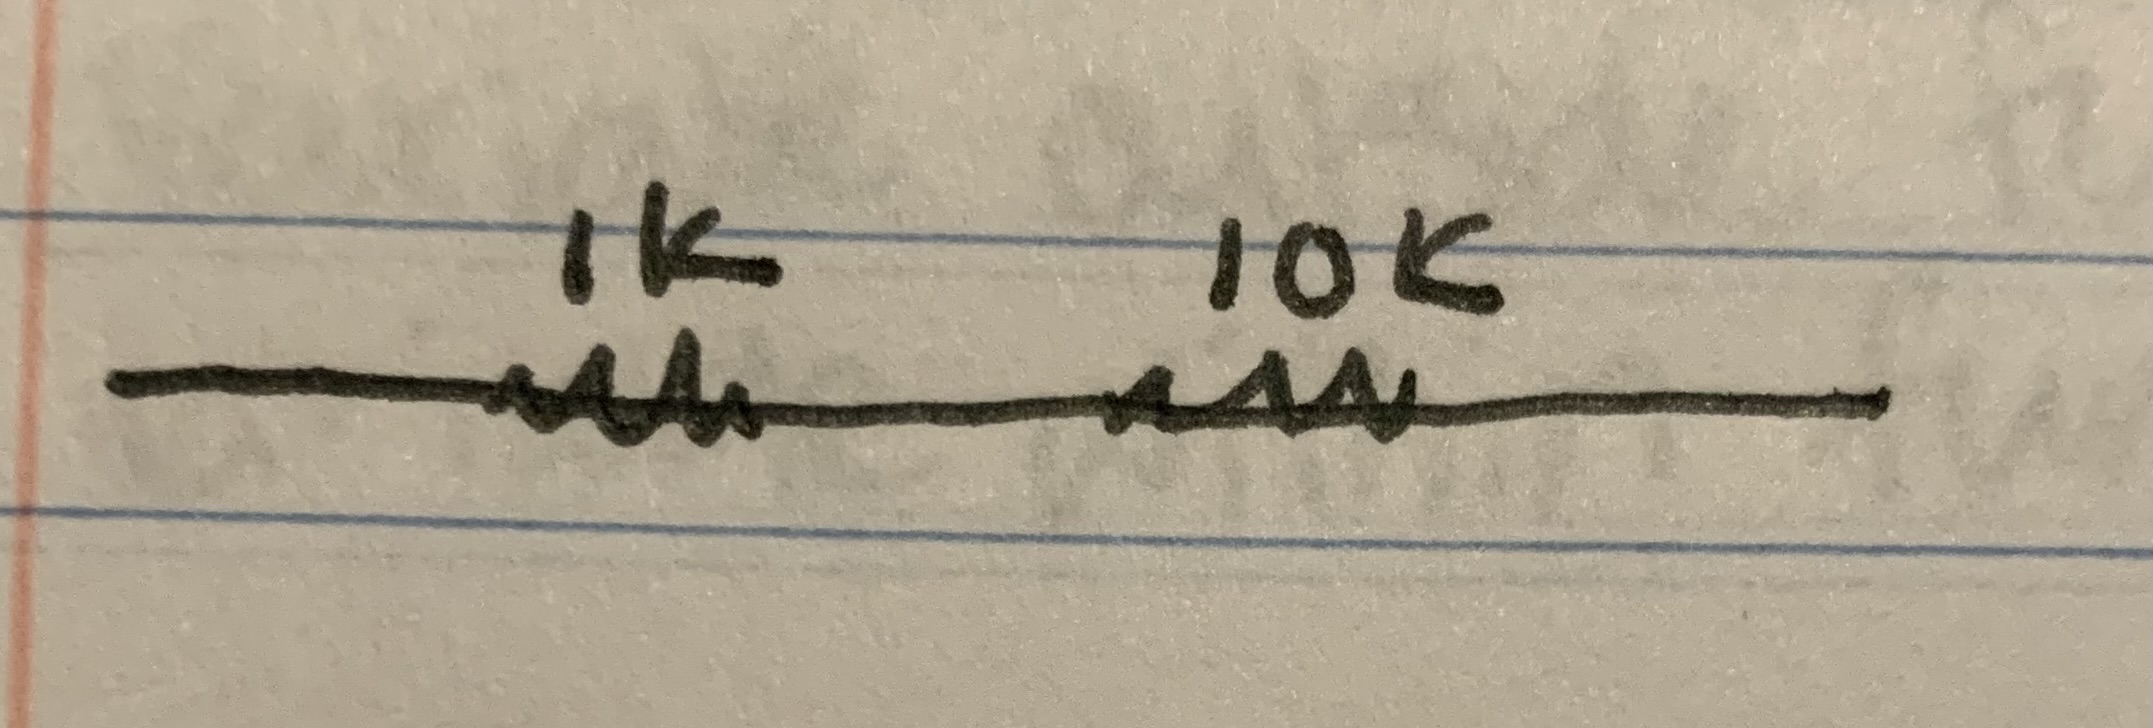 1K 10K